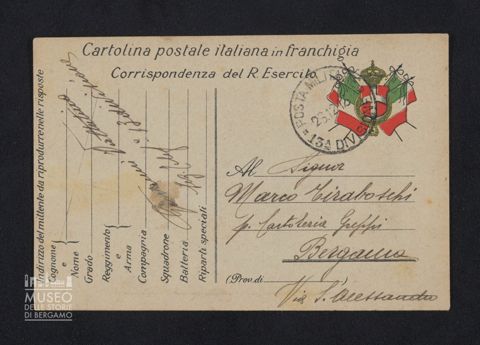 Cartolina postale italiana in franchigia
Corrispondenza del R. Esercito
POSTA MILITARE
13A DIVISIONE
Indirizzo del mittente da riprodurre nelle risposte
Cognome e Nome
Grado
Reggimento e Arma
Compagnia
Squadrone
Batteria
Riparti speciali
Al Signor
Marco Tiraboschi
p. Cartoleria Greppi
Bergamo
(Prov. di )
Via S. Alessandro
MUSEO
DELLE STORIE
DI BERGAMO